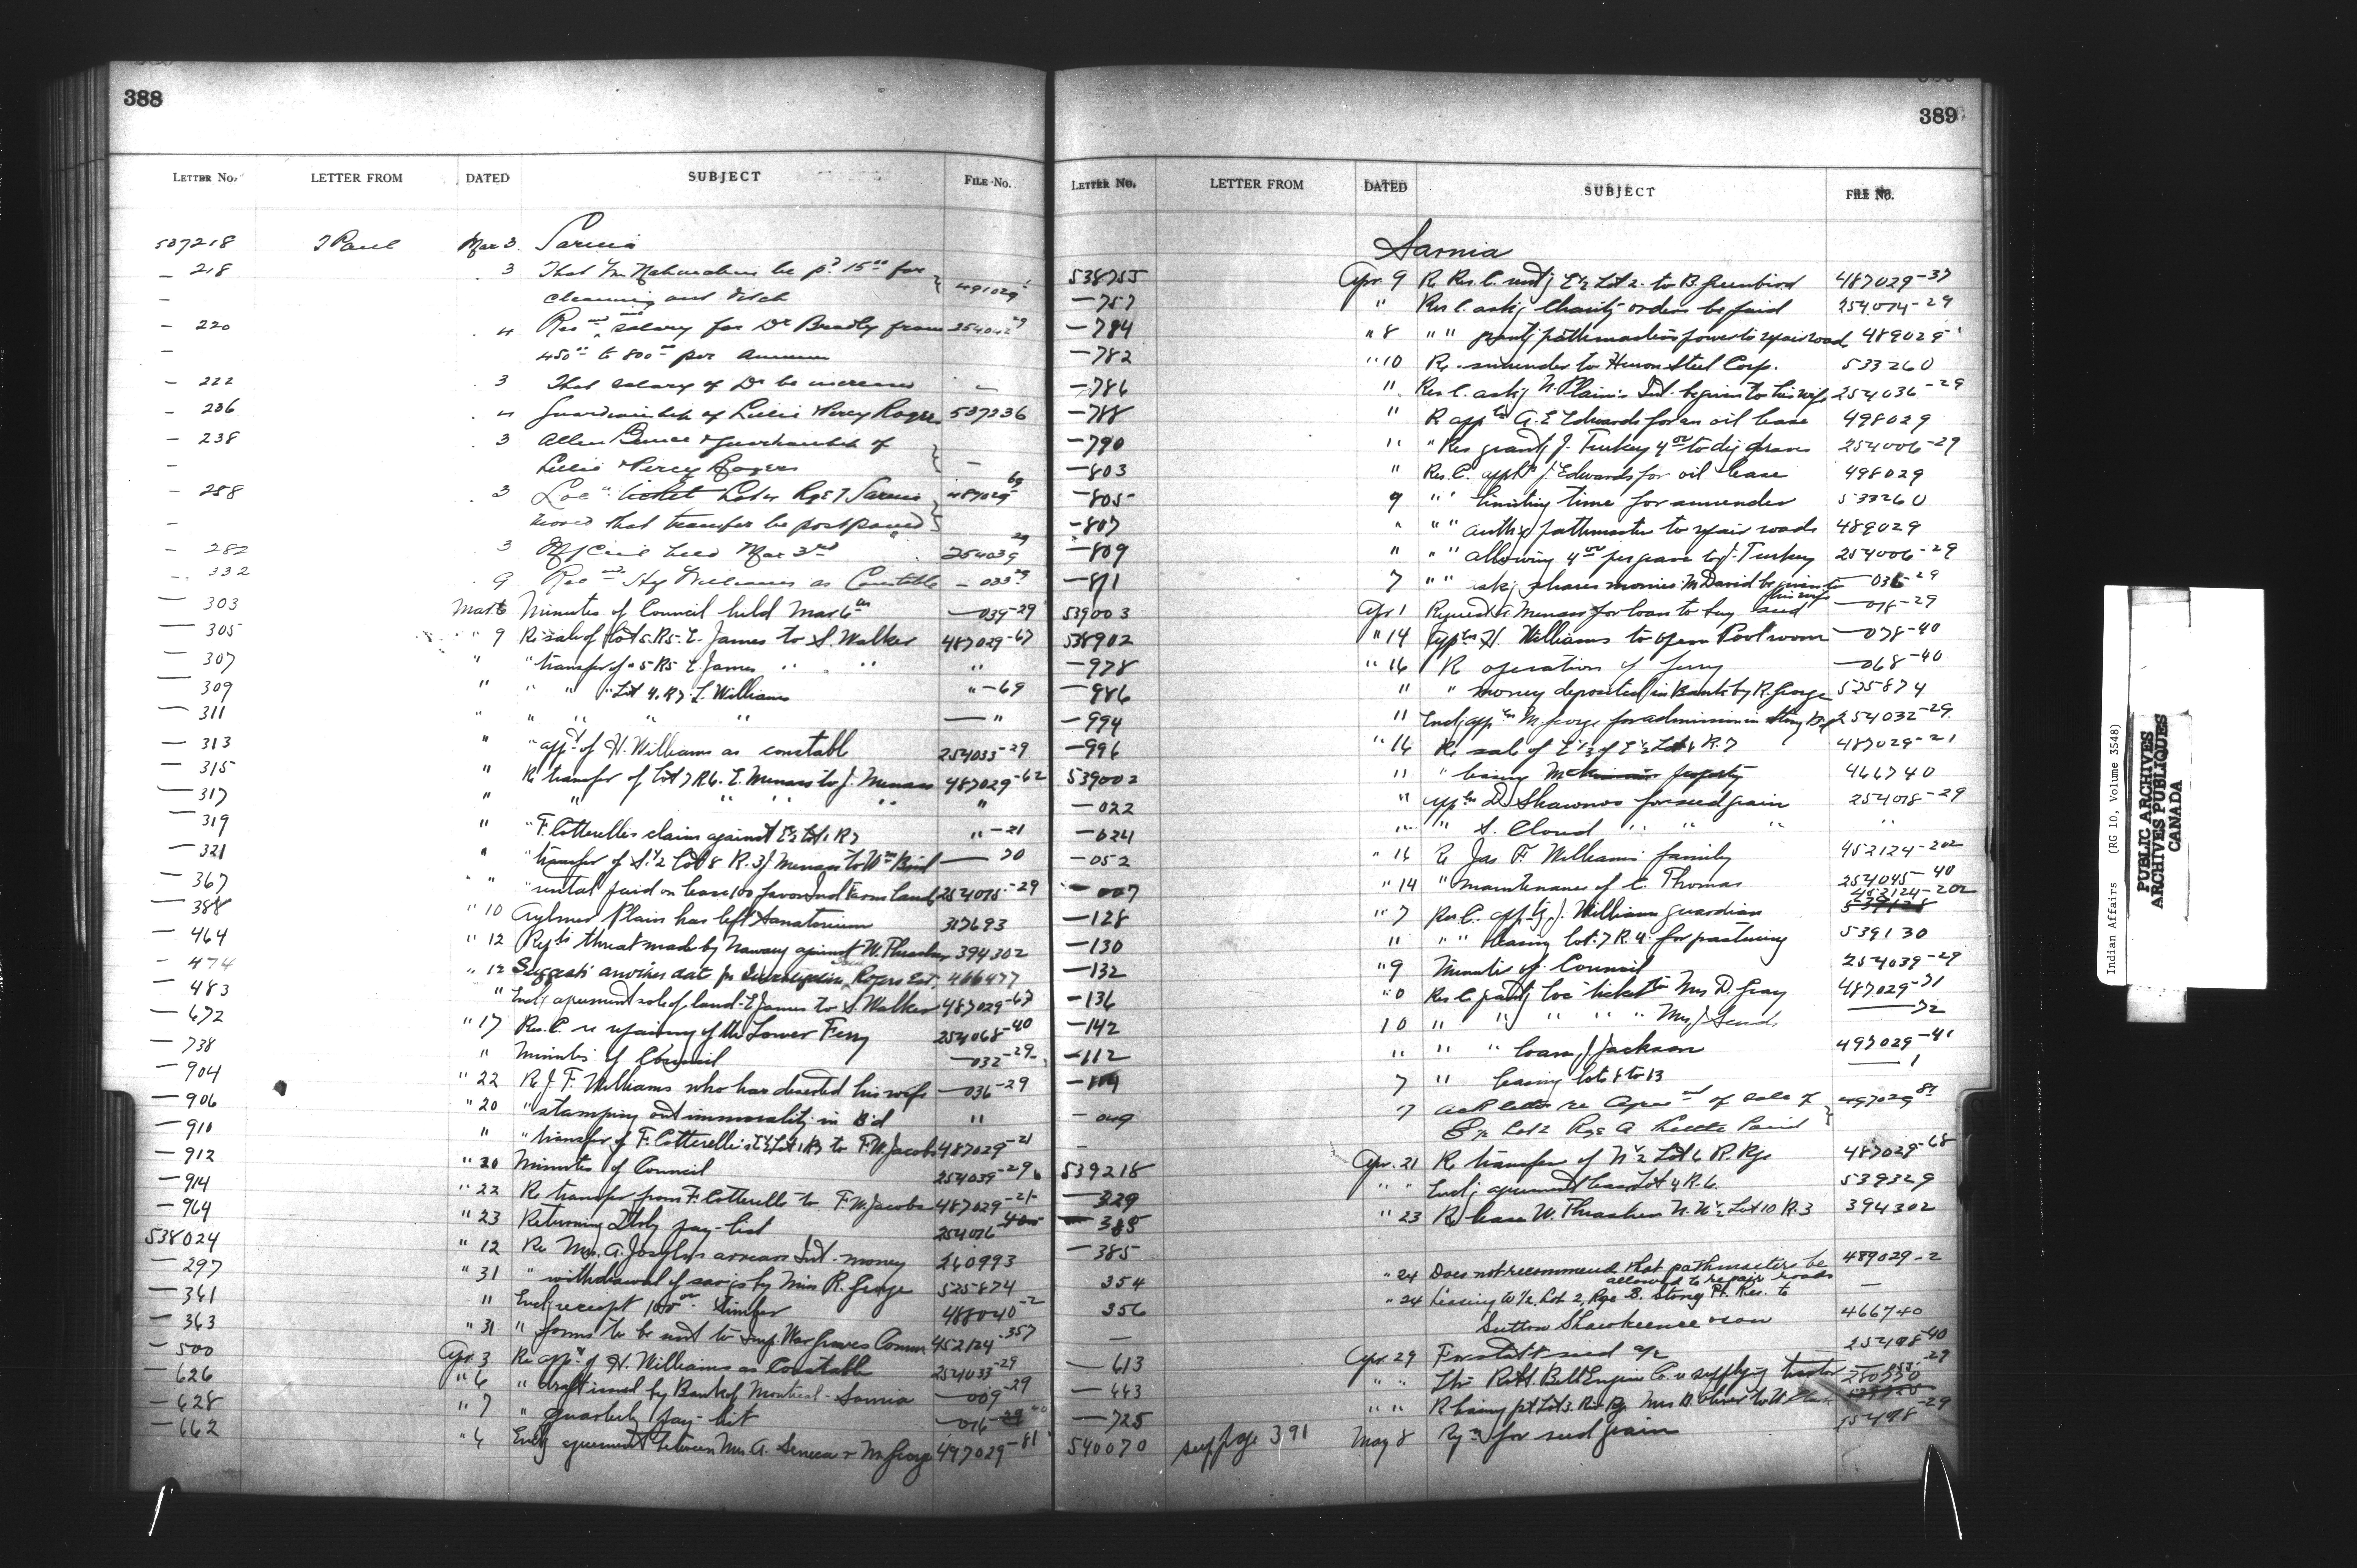 388
LETTER No. LETTER FROM DATED SUBJECT FILE No.
537218 T Paul Mar 3 Sarnia
— 218 3 That be pd 15.00 for 491029
— cleaning out ditch
— 220 4 salary for Dr Bradly from 254042-29
— 450.00 to 800.00 per annum
— 222 3 That salary of Dr be increased —
— 236 4 Guardianship of Lillie & Percy Rogers 537236
— 238 3 Allen & guardianship of
— Lillie & Percy Rogers —
— 258 3 Loc. ticket Lot 4 Rge 7 Sarnia 487029-69
— moved that transfer be postponed
— 282 3 held Mar 3rd 254039-29
— 332 9 Hy Williams as Constable — 033-29
— 303 Mar 6 Minutes of Council held Mar 6th — 039-29
— 305 " 9 Re sale of Lot 5 R5 E. James to S. Walker 487029-67
— 307 " " transfer of " 5 R5 E. James " " "
— 309 " " " " Lot 4. R7 L. Williams " -69
— 311 " " " " " — "
— 313 " " appt. of H. Williams as constable 254033-29
— 315 " Re transfer of Lot 7 R6. E. Menass to J. Menass 487029-62
— 317 " " " " " "
— 319 " " F. Cotterelles claim against E½ Lot 1 R7 " -21
— 321 " " transfer of S½ Lot 8 R.3 J Menass to Wm Bird — 70
— 367 " " " rental paid on lease 100 favor Ind Farm Land 254015-29
— 388 " 10 Aylmer Plain has left Sanatorium 317693
— 464 " 12 threat made by against W. Thrasher 394302
— 474 " 12 Suggests another date for Rogers Est. 466477
— 483 " Encl'g agreement sale of land - E James to S Walker 487029-67
— 672 " 17 Res. C. re repairing of the Lower Ferry 254068-40
— 738 " Minutes of Council — 032-29
— 904 " 22 Re J. F. Williams who has deserted his wife — 036-29
— 906 " 20 " stamping out immorality in B'd "
— 910 " " transfer of F. Cotterelle's E½ Lot 1 R7 to F.W. Jacobs 487029-21
— 912 " 20 Minutes of Council 254039-29
— 914 " 22 Re transfer from F. Cotterelle to F.W. Jacobs 487029-21
— 964 " 23 Returning pay-list 254016-40
538024 " 12 Re Mrs. A. Joseph's arrears Int. money 260993
— 297 " 31 " withdrawal of sav'gs by Miss R. George 525874
— 361 " Encl'g receipt 100.00 timber 488040-2
— 363 " 31 " forms to be sent to Imp. War Graves Comm 452124-357
— 500 Apr. 3 Re appt. of H. Williams as Constable 254033-29
— 626 " 6 " draft issued by Bank of Montreal - Sarnia — 009-29
— 628 " 7 " quarterly pay-list — 016
— 662 " 6 Encl'g agreement between Mrs. A. Seneca & M. George 497029-81
389
LETTER No. LETTER FROM DATED SUBJECT FILE No.
Sarnia
538755 Apr. 9 Re Res. C. E½ Lot 2. to B. Greenbird 487029-37
— 757 " Res. C. ask'g Charity orders be paid 254014-29
— 784 " 8 " " grant'g pathmasters power to repair roads 489029
— 782 " 10 Re surrender to Huron Steel Corp. 533260
— 786 " Res. C. ask'g N. Plain's Int. be given to his wife 254036-29
— 788 " R appln A. E. Edwards for an oil lease 498029
— 790 " " Res grant'g J. Turkey 4.00 to dig graves 254006-29
— 803 " Res. C. J. Edwards for oil lease 498029
— 805 9 " " limiting time for surrender 533260
— 807 " " " pathmaster to repair roads 489029
— 809 " " " allowing 4.00 per grave to J. Turkey 254006-29
— 811 7 " " ask'g shares monies M. David be given to his wife — 036-29
539003 Apr. 1 Request Menass for loan to buy seed — 018-29
538902 " 14 Appln H. Williams to open Pool room — 078-40
— 978 " 16 Re operation of ferry — 068-40
— 986 " " money deposited in Bank by R. George 525874
— 994 " Encl'g appln M. George for admission in 254032-29
— 996 " 16 Re sale of E½ of E½ Lot 1 R. 7 487029-21
539002 " " leasing property 466740
— 022 " appln D. Shawnoo for seed grain 254018-29
— 024 " " S. Cloud " " " "
— 052 " 16 Re Jas F. Williams family 452124-202
— 007 " 14 " maintenance of C. Thomas 254045-40
— 128 " 7 Res. C. J. Williams guardian 452124-202
— 130 " " " leasing Lot. 7 R.4 for pasturing 539130
— 132 " 9 Minutes of Council 254039-29
— 136 Res. C. grant'g loc. ticket to Mrs D. Gray 487029-71
— 142 10 " " " " " Mrs J — 72
— 112 " " " loan J Jackson 493029-41
— 114 7 " leasing lots 8 to 13 — 1
— 049 7 re of sale of 497029-81
— Lot 2 Rge A
539218 Apr. 21 Re transfer of N½ Lot 6 R. Rge 487029-68
— 329 " " Encl'g agreement lease Lot 4 R.6. 539329
— 385 " 23 Re lease W. Thrasher N. W½ Lot 10 R.3 394302
— 385
354 " 24 Does not recommend that pathmasters be 489029-2
allowed to repair roads —
356 " 24 Leasing W½, Lot 2, Rge B. Stoney Pt. Res. to
— Sutton Shawkeence 466740
— 613 Apr. 29 seed 254018-40
— 443 " " Robt. Bell Engine Co. re supplying tractor
— 725 " " Re leasing pt Lot 3. Mrs
540070 see page 391 May 8 for seed grain -29
Indian Affairs (RG 10, Volume 3548)
PUBLIC ARCHIVES
ARCHIVES PUBLIQUES
CANADA